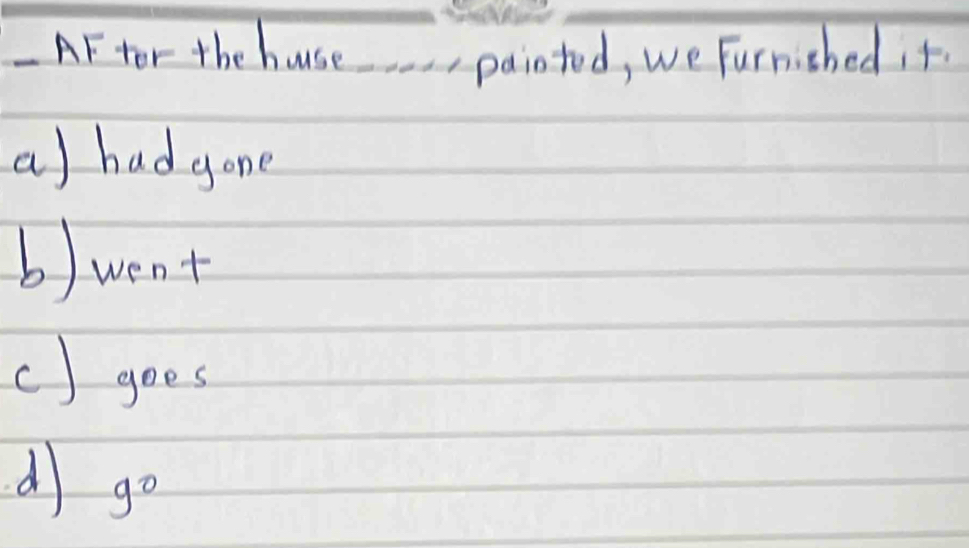 - AFter the house ...... painted, we Furnished it.
a) had gone
b) went
c) goes
d) go